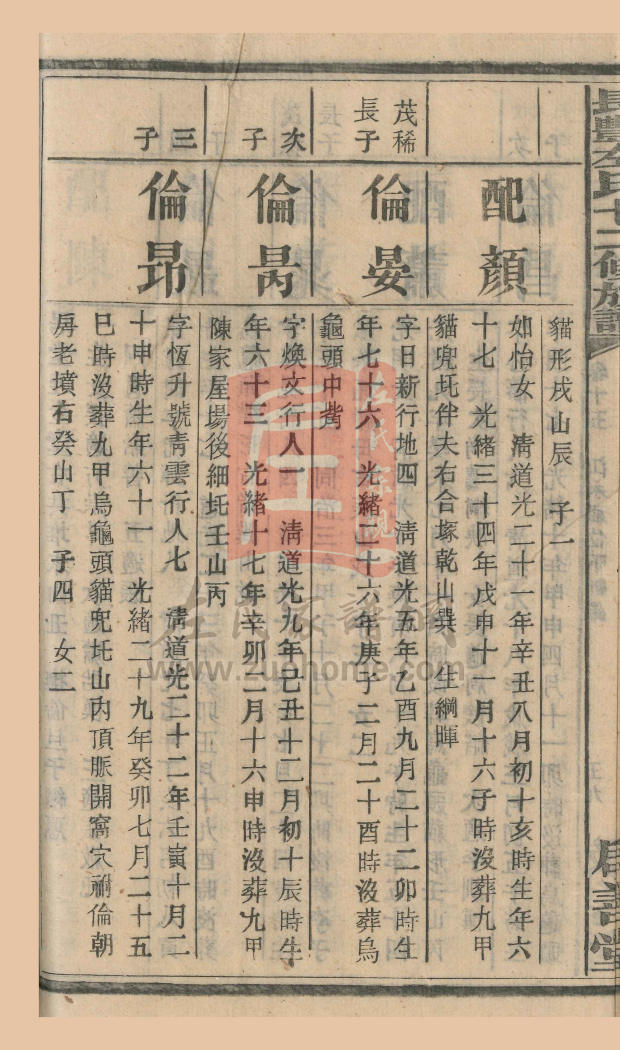 長豐左氏十二修族譜
貓形戌山辰 子一
配顏
如怡女 清道光二十一年辛丑八月初十亥時生年六
十七 光緒三十四年戊申十一月十六子時沒葬九甲
貓兜坵伴夫右合塚乾山巽 生綱暉
茂稀
長子
倫晏
字日新行地四 清道光五年乙酉九月二十二卯時生
年七十六 光緒二十六年庚子二月二十酉時沒葬烏
龜頭中嘴
次
子
倫昺
字煥文行人一 清道光九年己丑十二月初十辰時生
年六十三 光緒十七年辛卯二月十六申時沒葬九甲
陳家屋場後細坵壬山丙
三
子
倫昂
字恆升號靑雲行人七 淸道光二十二年壬寅十月二
十申時生年六十一 光緒二十九年癸卯七月二十五
巳時沒葬九甲烏龜頭貓兜坵山內頂脈開窩穴祔倫朝
房老墳右癸山丁 子四 女二
左氏家譜
www.zuohome.com